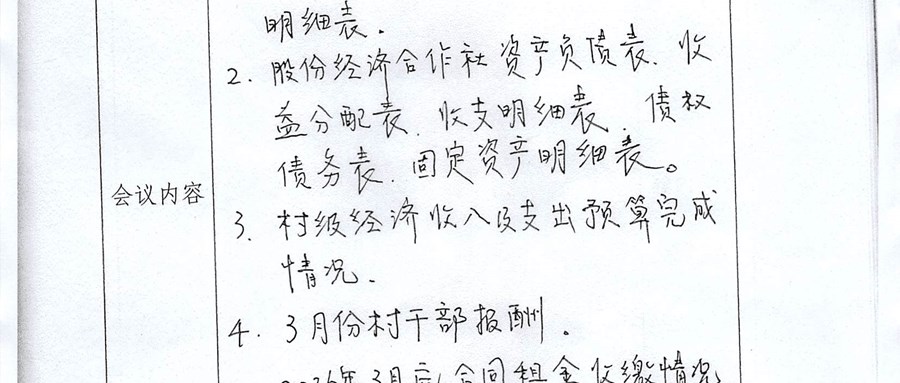 明细表.
2. 股份经济合作社资产负债表、收
益分配表、收支明细表、债权
债务表、固定资产明细表。
会议内容
3. 村级经济收入及支出预算完成
情况.
4. 3月份村干部报酬.
年3月应合同租金收缴情况